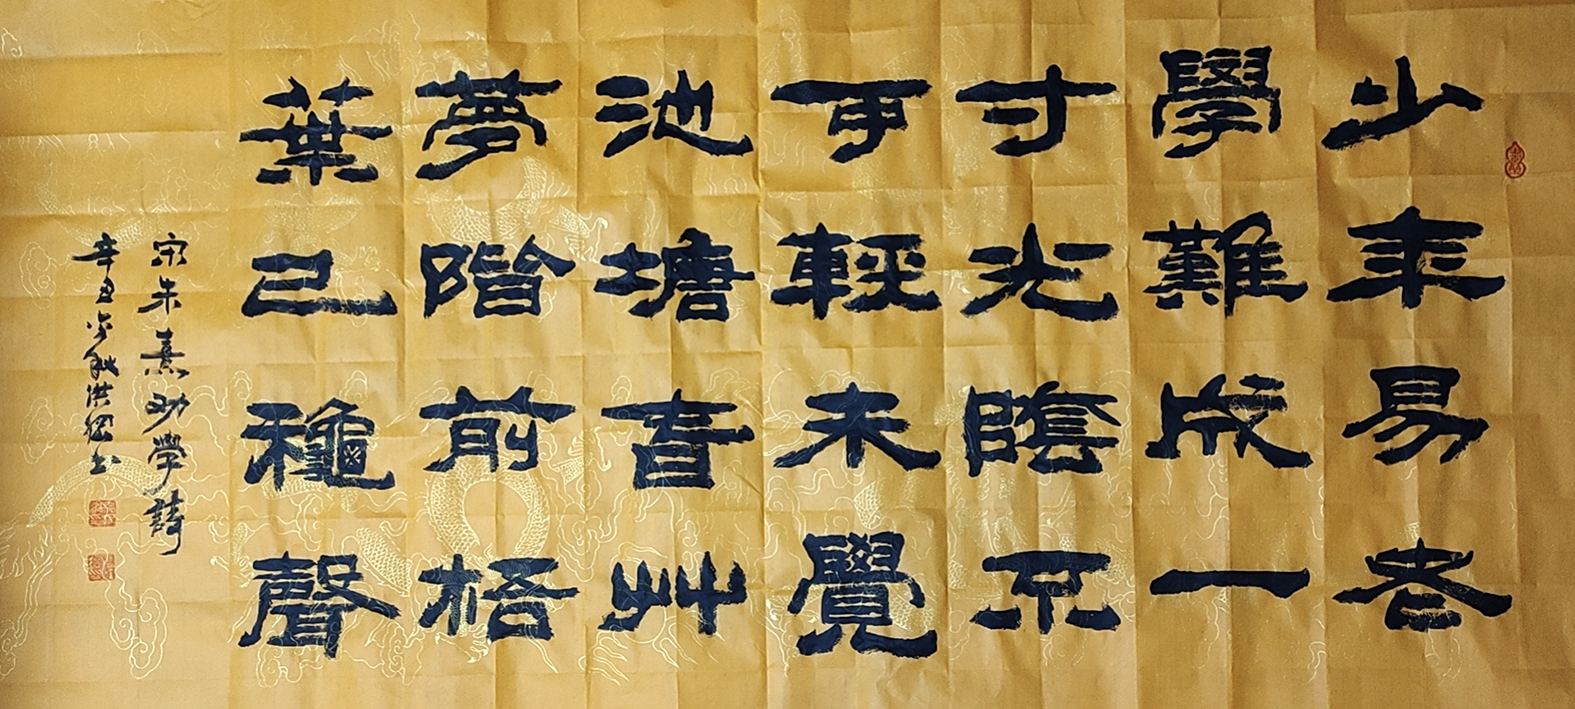 少年易老
學難成一
寸光陰不
可輕未覺
池塘春艸
夢階前梧
葉已穐聲
宋朱熹劝學詩
辛丑 秋洪 书